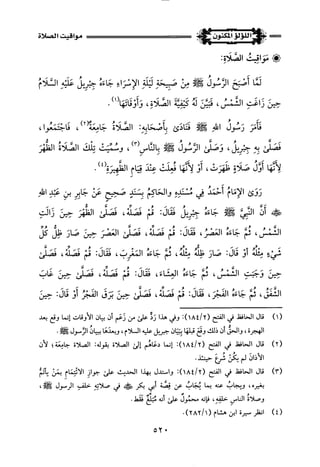 مواقيت الصلاة
اللؤلؤ المكنون
مَوَاقِيتُ الصَّلَاةِ:
لَمَّا أَصْبَحَ الرَّسُولُ ﷺ مِنْ صَبِيحَةِ لَيْلَةِ الْإِسْرَاءِ جَاءَهُ جِبْرِيلُ عَلَيْهِ السَّلَامُ
حِينَ زَاغَتِ الشَّمْسُ، فَبَيَّنَ لَهُ كَيْفِيَّةَ الصَّلَاةِ، وَأَوْقَاتَهَا(١).
فَأَمَرَ رَسُولُ اللهِ ﷺ فَنَادَى بِأَصْحَابِهِ: الصَّلَاةُ جَامِعَةٌ(٢)، فَاجْتَمَعُوا،
فَصَلَّى بِهِ جِبْرِيلُ، وَصَلَّى الرَّسُولُ ﷺ بِالنَّاسِ(٣)، وَسُمِّيَتْ تِلْكَ الصَّلَاةُ الظُّهْرَ
لِأَنَّهَا أَوَّلُ صَلَاةٍ ظَهَرَتْ، أَوْ لِأَنَّهَا فُعِلَتْ عِنْدَ قِيَامِ الظَّهِيرَةِ(٤).
رَوَى الْإِمَامُ أَحْمَدُ فِي مُسْنَدِهِ وَالْحَاكِمُ بِسَنَدٍ صَحِيحٍ عَنْ جَابِرِ بْنِ عَبْدِ اللهِ
أَنَّ النَّبِيَّ ﷺ جَاءَهُ جِبْرِيلُ فَقَالَ: قُمْ فَصَلِّهْ، فَصَلَّى الظُّهْرَ حِينَ زَالَتِ
الشَّمْسُ، ثُمَّ جَاءَهُ الْعَصْرَ، فَقَالَ: قُمْ فَصَلِّهْ، فَصَلَّى الْعَصْرَ حِينَ صَارَ ظِلُّ كُلِّ
شَيْءٍ مِثْلَهُ أَوْ قَالَ: صَارَ ظِلُّهُ مِثْلَهُ، ثُمَّ جَاءَهُ الْمَغْرِبَ، فَقَالَ: قُمْ فَصَلِّهْ، فَصَلَّى
حِينَ وَجَبَتِ الشَّمْسُ، ثُمَّ جَاءَهُ الْعِشَاءَ، فَقَالَ: قُمْ فَصَلِّهْ، فَصَلَّى حِينَ غَابَ
الشَّفَقُ، ثُمَّ جَاءَهُ الْفَجْرَ، فَقَالَ: قُمْ فَصَلِّهْ، فَصَلَّى حِينَ بَرَقَ الْفَجْرُ أَوْ قَالَ: حِينَ
(١) قال الحافظ في الفتح (١٨٤/٢): وفي هذا رَدٌّ على من زعم أن بيان الأوقات إنما وقع بعد
الهجرة، والحق أن ذلك وقع قبلها ببيان جبريل عليه السلام، وبعدها ببيان الرسول ﷺ.
(٢) قال الحافظ في الفتح (١٨٤/٢): إنما دعاهم إلى الصلاة بقوله: الصلاة جامعة؛ لأن
الأذان لم يكن شرع حينئذ.
(٣) قال الحافظ في الفتح (١٨٤/٢): واستدل بهذا الحديث على جواز الائتمام بمن يأتم
بغيره، ويجاب عنه بما يُجاب عن قصة أبي بكر في صلاته خلف الرسول ﷺ،
وصلاة الناس خلفه، فإنه محمول على أنه مُبَلِّغ فقط.
(٤) انظر سيرة ابن هشام (٢٨٢/١).
٥٢٠